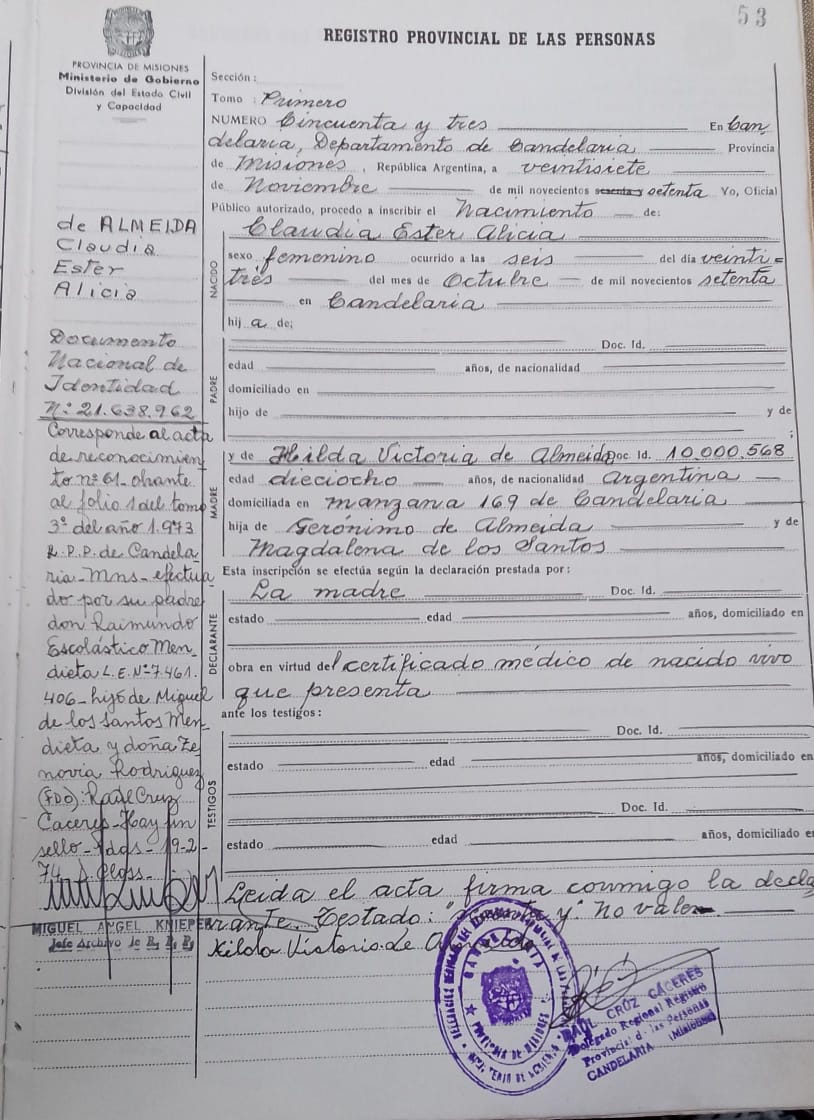 53
REGISTRO PROVINCIAL DE LAS PERSONAS
PROVINCIA DE MISIONES
Ministerio de Gobierno
División del Estado Civil
y Capacidad
Sección:
Tomo: Primero
NUMERO Cincuenta y tres En Can
delaria, Departamento de Candelaria Provincia
de Misiones, República Argentina, a veintisiete
de Noviembre de mil novecientos sesenta y setenta Yo, Oficial
Público autorizado, procedo a inscribir el Nacimiento de:
Claudia Ester Alicia
NACIDO
sexo femenino ocurrido a las seis del día veinti=
trés del mes de Octubre de mil novecientos setenta
en Candelaria
hij a de:
PADRE
Doc. Id.
edad años, de nacionalidad
domiciliado en
hijo de y de
;
MADRE
y de Hilda Victoria de Almeida Doc. Id. 10.000.568
edad dieciocho años, de nacionalidad argentina
domiciliada en manzana 169 de Candelaria
hija de Gerónimo de Almeida y de
Magdalena de los Santos
Esta inscripción se efectúa según la declaración prestada por:
DECLARANTE
La madre Doc. Id.
estado edad años, domiciliado en
obra en virtud del certificado médico de nacido vivo
que presenta
ante los testigos:
TESTIGOS
Doc. Id.
estado edad años, domiciliado en
Doc. Id.
estado edad años, domiciliado en
Leida el acta firma conmigo la decla
rante. Testado: " y" no vale
Hilda Victoria de Almeida
de ALMEIDA
Claudia
Ester
Alicia
Documento
Nacional de
Identidad
N: 21.638.962
Corresponde al acta
de reconocimien
to nº 61- obrante
al folio 1 del tomo
3º del año 1.973
R.P.P. de Candela
ria- Mns- efectua
do por su padre
don Raimundo
Escolástico Men
dieta L.E. Nº 7.461.
406- hijo de Miguel
de los Santos Men
dieta y doña Ze
novia Rodriguez
(FDO): Raúl Cruz
Caceres- Hay un
sello- Pdas- 19-2-
74
MIGUEL ANGEL KNIEPER
Jefe Archivo de R. P. P.
CANDELARIA
PROVINCIA DE MISIONES
RAUL CRUZ CACERES
Delegado Regional Registro
Provincial d. las Personas
CANDELARIA (Misiones)